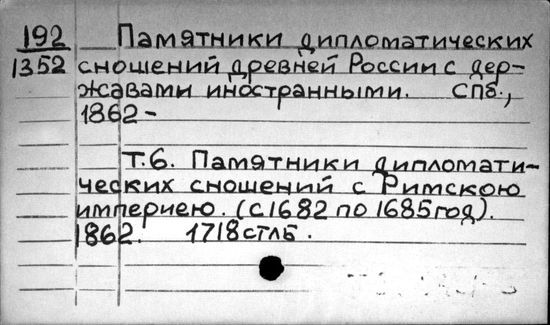 192 Памятники дипломатических
1352 сношений древней России с дер-
жавами иностранными. СПб.,
1862-
Т.6. Памятники дипломати-
ческих сношений с Римскою
империею. (с 1682 по 1685 год).
1862. 1718 стлб.